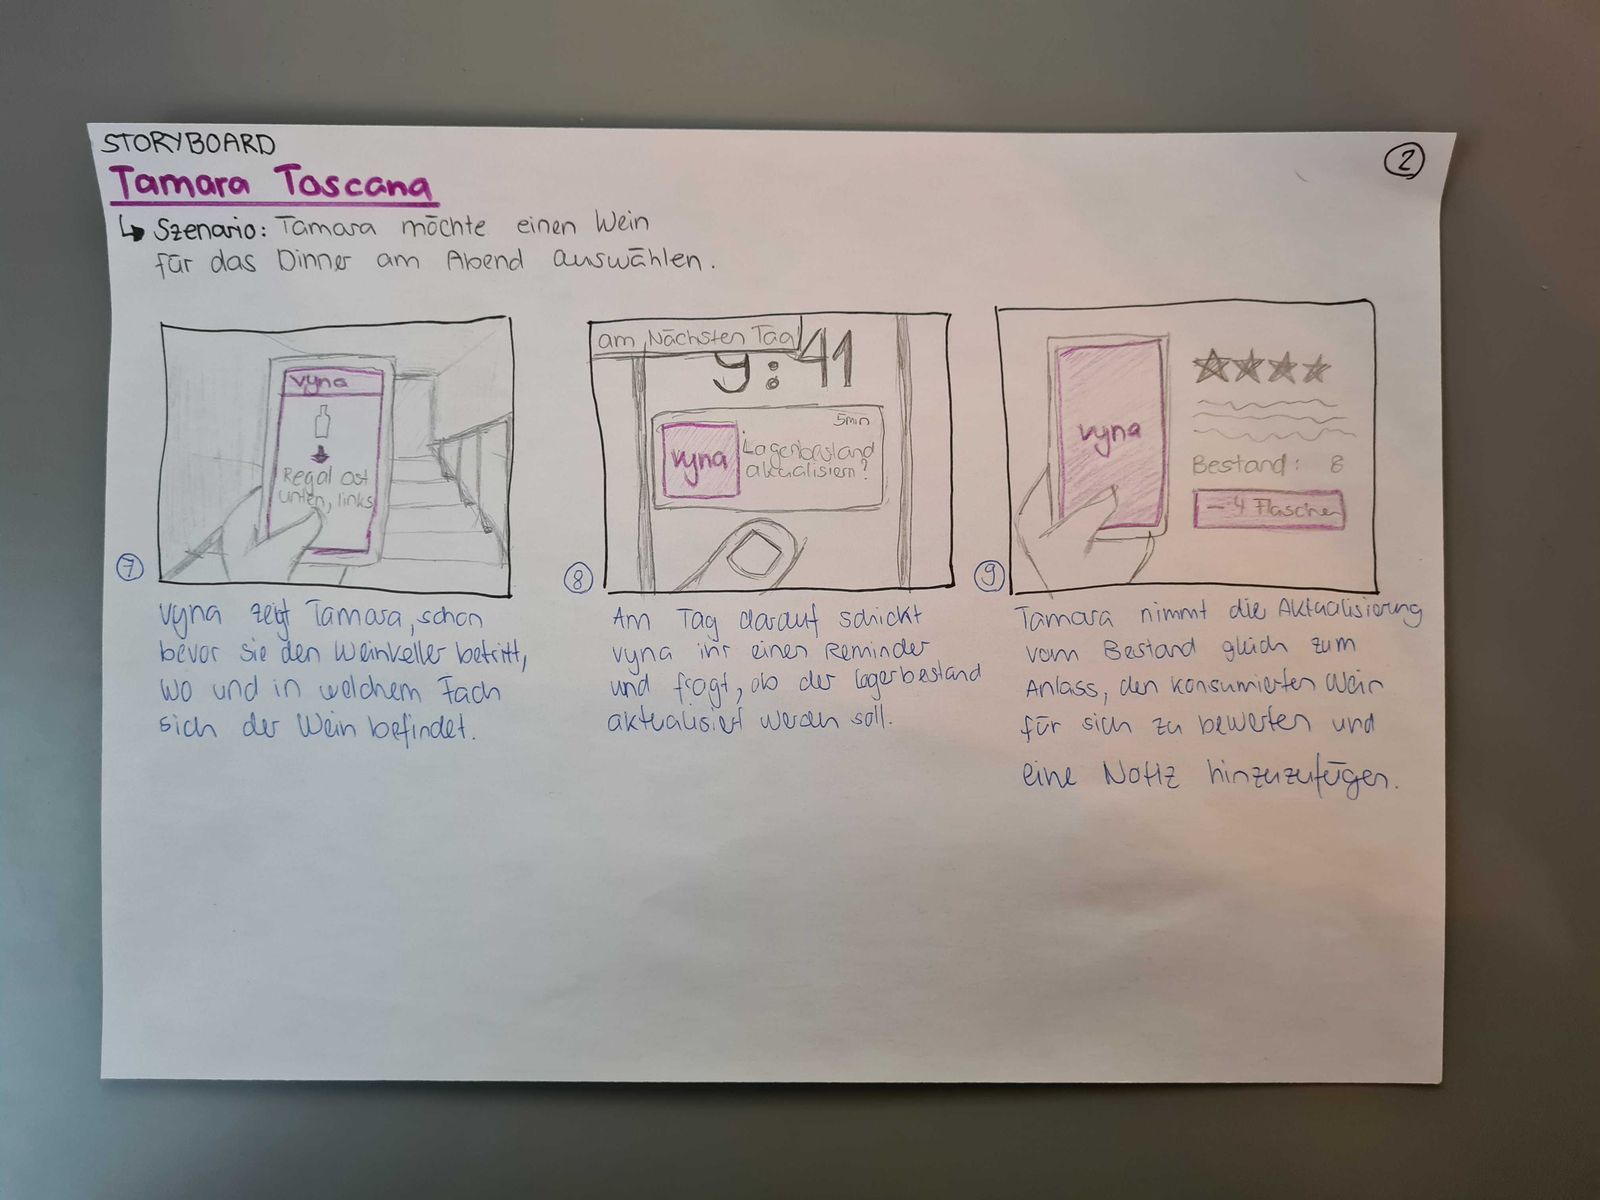 STORYBOARD
2
Tamara Toscana
↳ Szenario: Tamara möchte einen Wein
für das Dinner am Abend auswählen.
vyna
Regal Ost
unten, links
7
vyna zeigt Tamara, schon
bevor sie den Weinkeller betritt,
wo und in welchem Fach
sich der Wein befindet.
am Nächsten Tag
9:41
5min
vyna
Lagerbestand
aktualisiern?
8
Am Tag darauf schickt
vyna ihr einen Reminder
und fragt, ob der Lagerbestand
aktualisiert werden soll.
vyna
Bestand: 8
- 4 Flaschen
9
Tamara nimmt die Aktualisierung
vom Bestand gleich zum
Anlass, den konsumierten Wein
für sich zu bewerten und
eine Notiz hinzuzufügen.